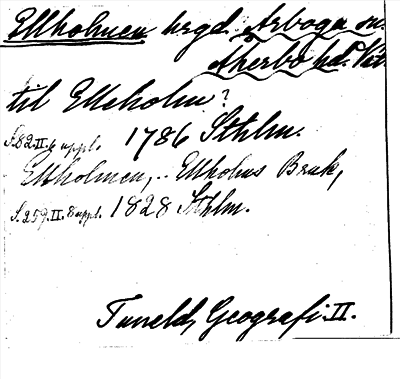 Ellholmen hrgd. Arboga sn.
Åkerbo hd. Väst
til Elleholm?
S. 82. II. 6 uppl. 1786 Sthlm.
Ellholmen, .. Ellholms Bruk,
S. 259. II. 8 uppl. 1828 Sthlm.
Tuneld, Geografi. II.